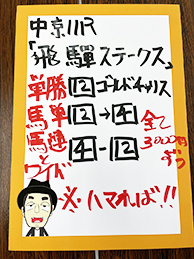 中京11R
「飛騨ステークス」
単勝 12 ゴールドチャリス
馬単 12→4
馬連 4-12
と
ワイド
全て
3000円
ずつ
※ハマれば!!